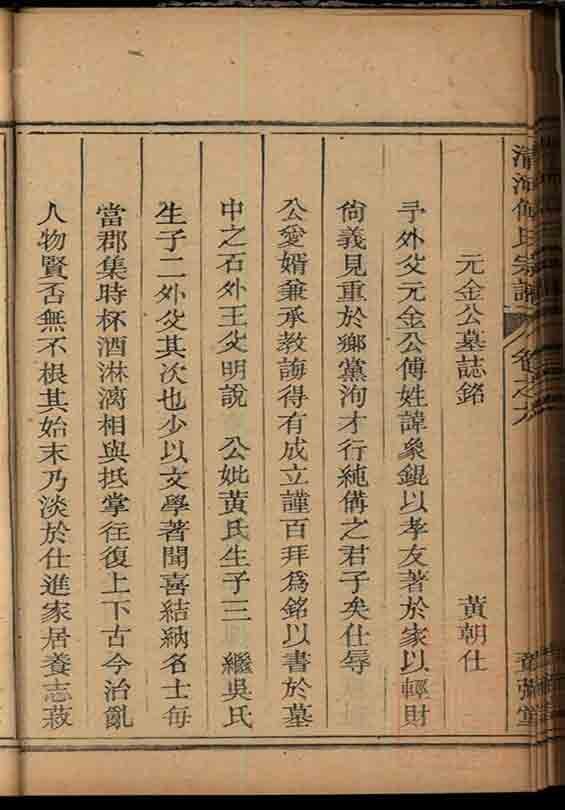 清河傅氏宗譜 卷之六
元金公墓誌銘 黃朝仕
予外父元金公傅姓諱象錕以孝友著於家以輕財
尙義見重於鄉黨洵才行純備之君子矣仕辱
公愛婿兼承教誨得有成立謹百拜爲銘以書於墓
中之石外王父明說 公妣黃氏生子三 繼吳氏
生子二外父其次也少以文學著聞喜結納名士每
當郡集時杯酒淋漓相與抵掌往復上下古今治亂
人物賢否無不根其始末乃淡於仕進家居養志菽